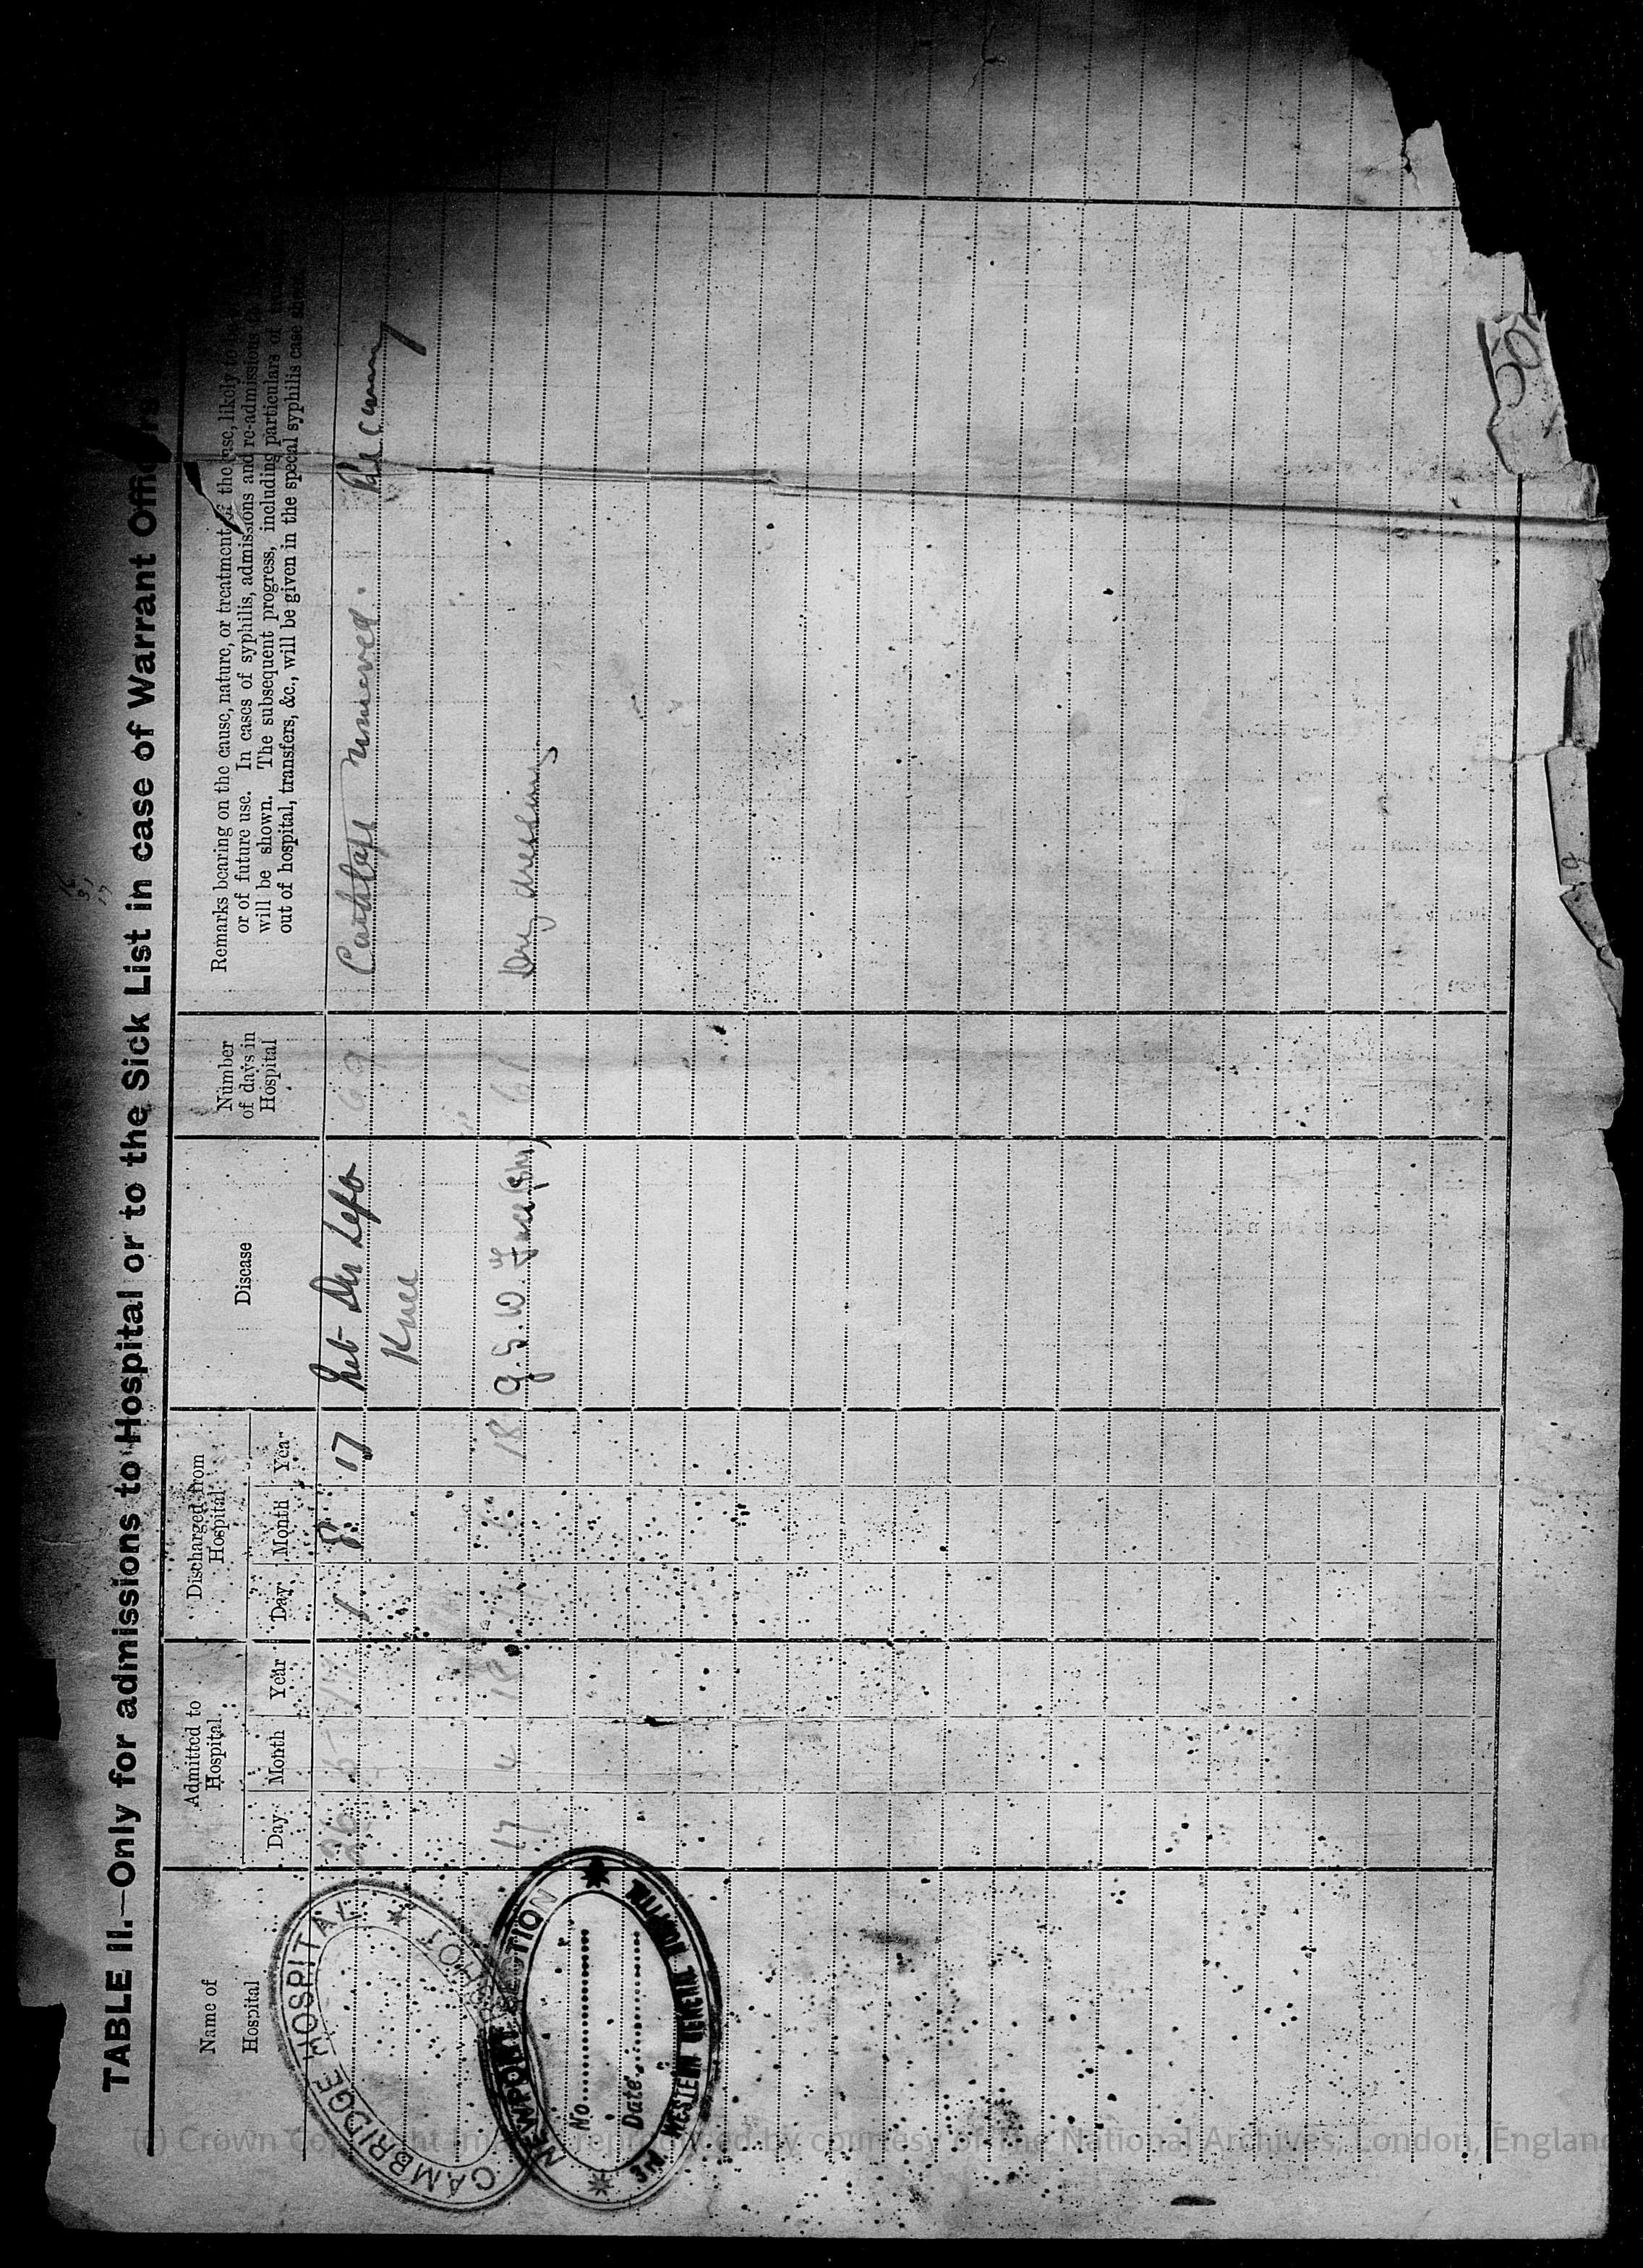 TABLE II.—Only for admissions to Hospital or to the Sick List in case of Warrant Officers
Name of
Hospital
Admitted to
Hospital
Day
Month
Year
Discharged from
Hospital
Day
Month
Year
Disease
Number
of days in
Hospital
Remarks bearing on the cause, nature, or treatment of the case, likely to be
or of future use. In cases of syphilis, admissions and re-admissions
will be shown. The subsequent progress, including particulars of
out of hospital, transfers, &c., will be given in the special syphilis case sheet
CAMBRIDGE HOSPITAL
26 5 17 1 8 17 Int Der Left 69 Cartilage removed.
Knee
NEWPORT SECTION
17 4 18 18 G.S.W. Face 61 Dry dressings
No.
Date
3rd WESTERN GENERAL HOSPITAL
50
(c) Crown Copyright images reproduced by courtesy of The National Archives, London, England